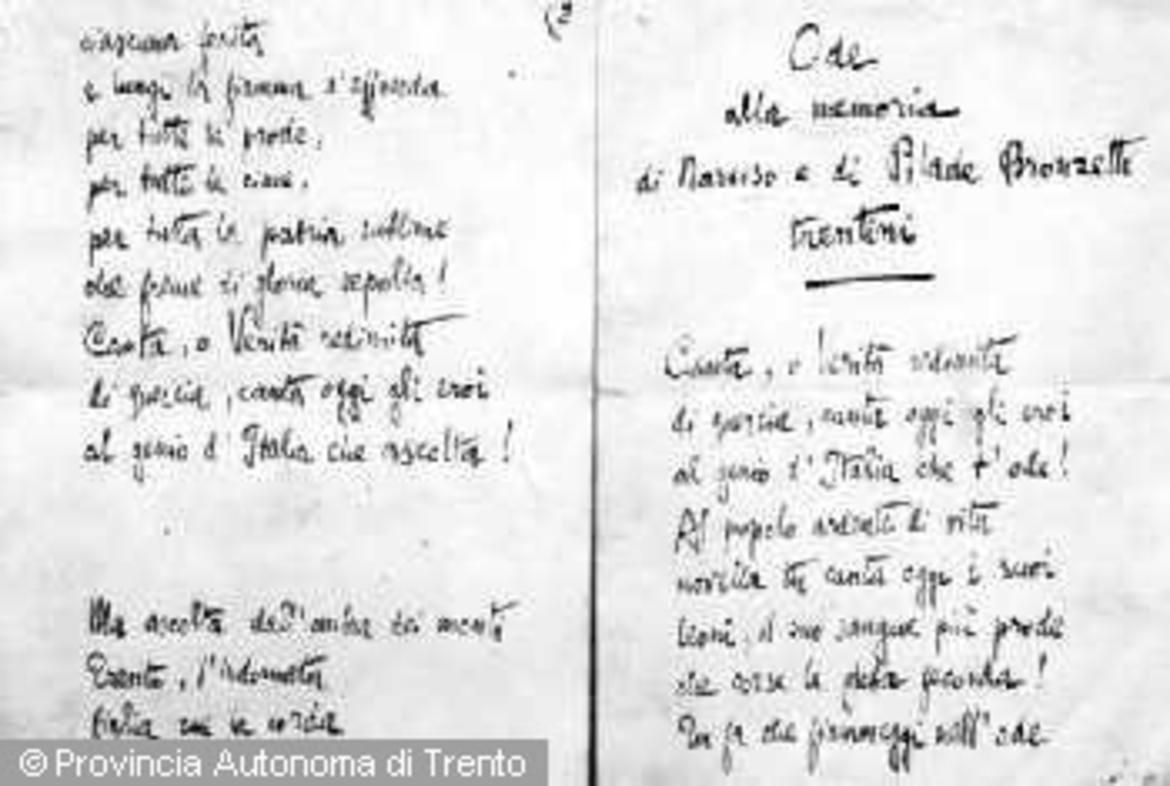 (2
ciascuna ferita
e lungi la fiamma s'effonda
per tutte le prode,
per tutte le cime,
per tutta la patria sublime
che freme di gloria sepolta!
Canta, o Verità redimita
di quercia, canta oggi gli eroi
al genio d'Italia che ascolta!
Ma ascolta dall'ombra dei monti
Trento, l'indomata
figlia
Ode
alla memoria
di Narciso e di Pilade Bronzetti
trentini
Canta, o Verità redimita
di quercia, canta oggi gli eroi
al genio d'Italia che t'ode!
Al popolo ardente di vita
novella tu canta oggi i suoi
leoni, il suo sangue più prode
che corse la gleba feconda!
Tu fa che fiammeggi nell'ode
© Provincia Autonoma di Trento